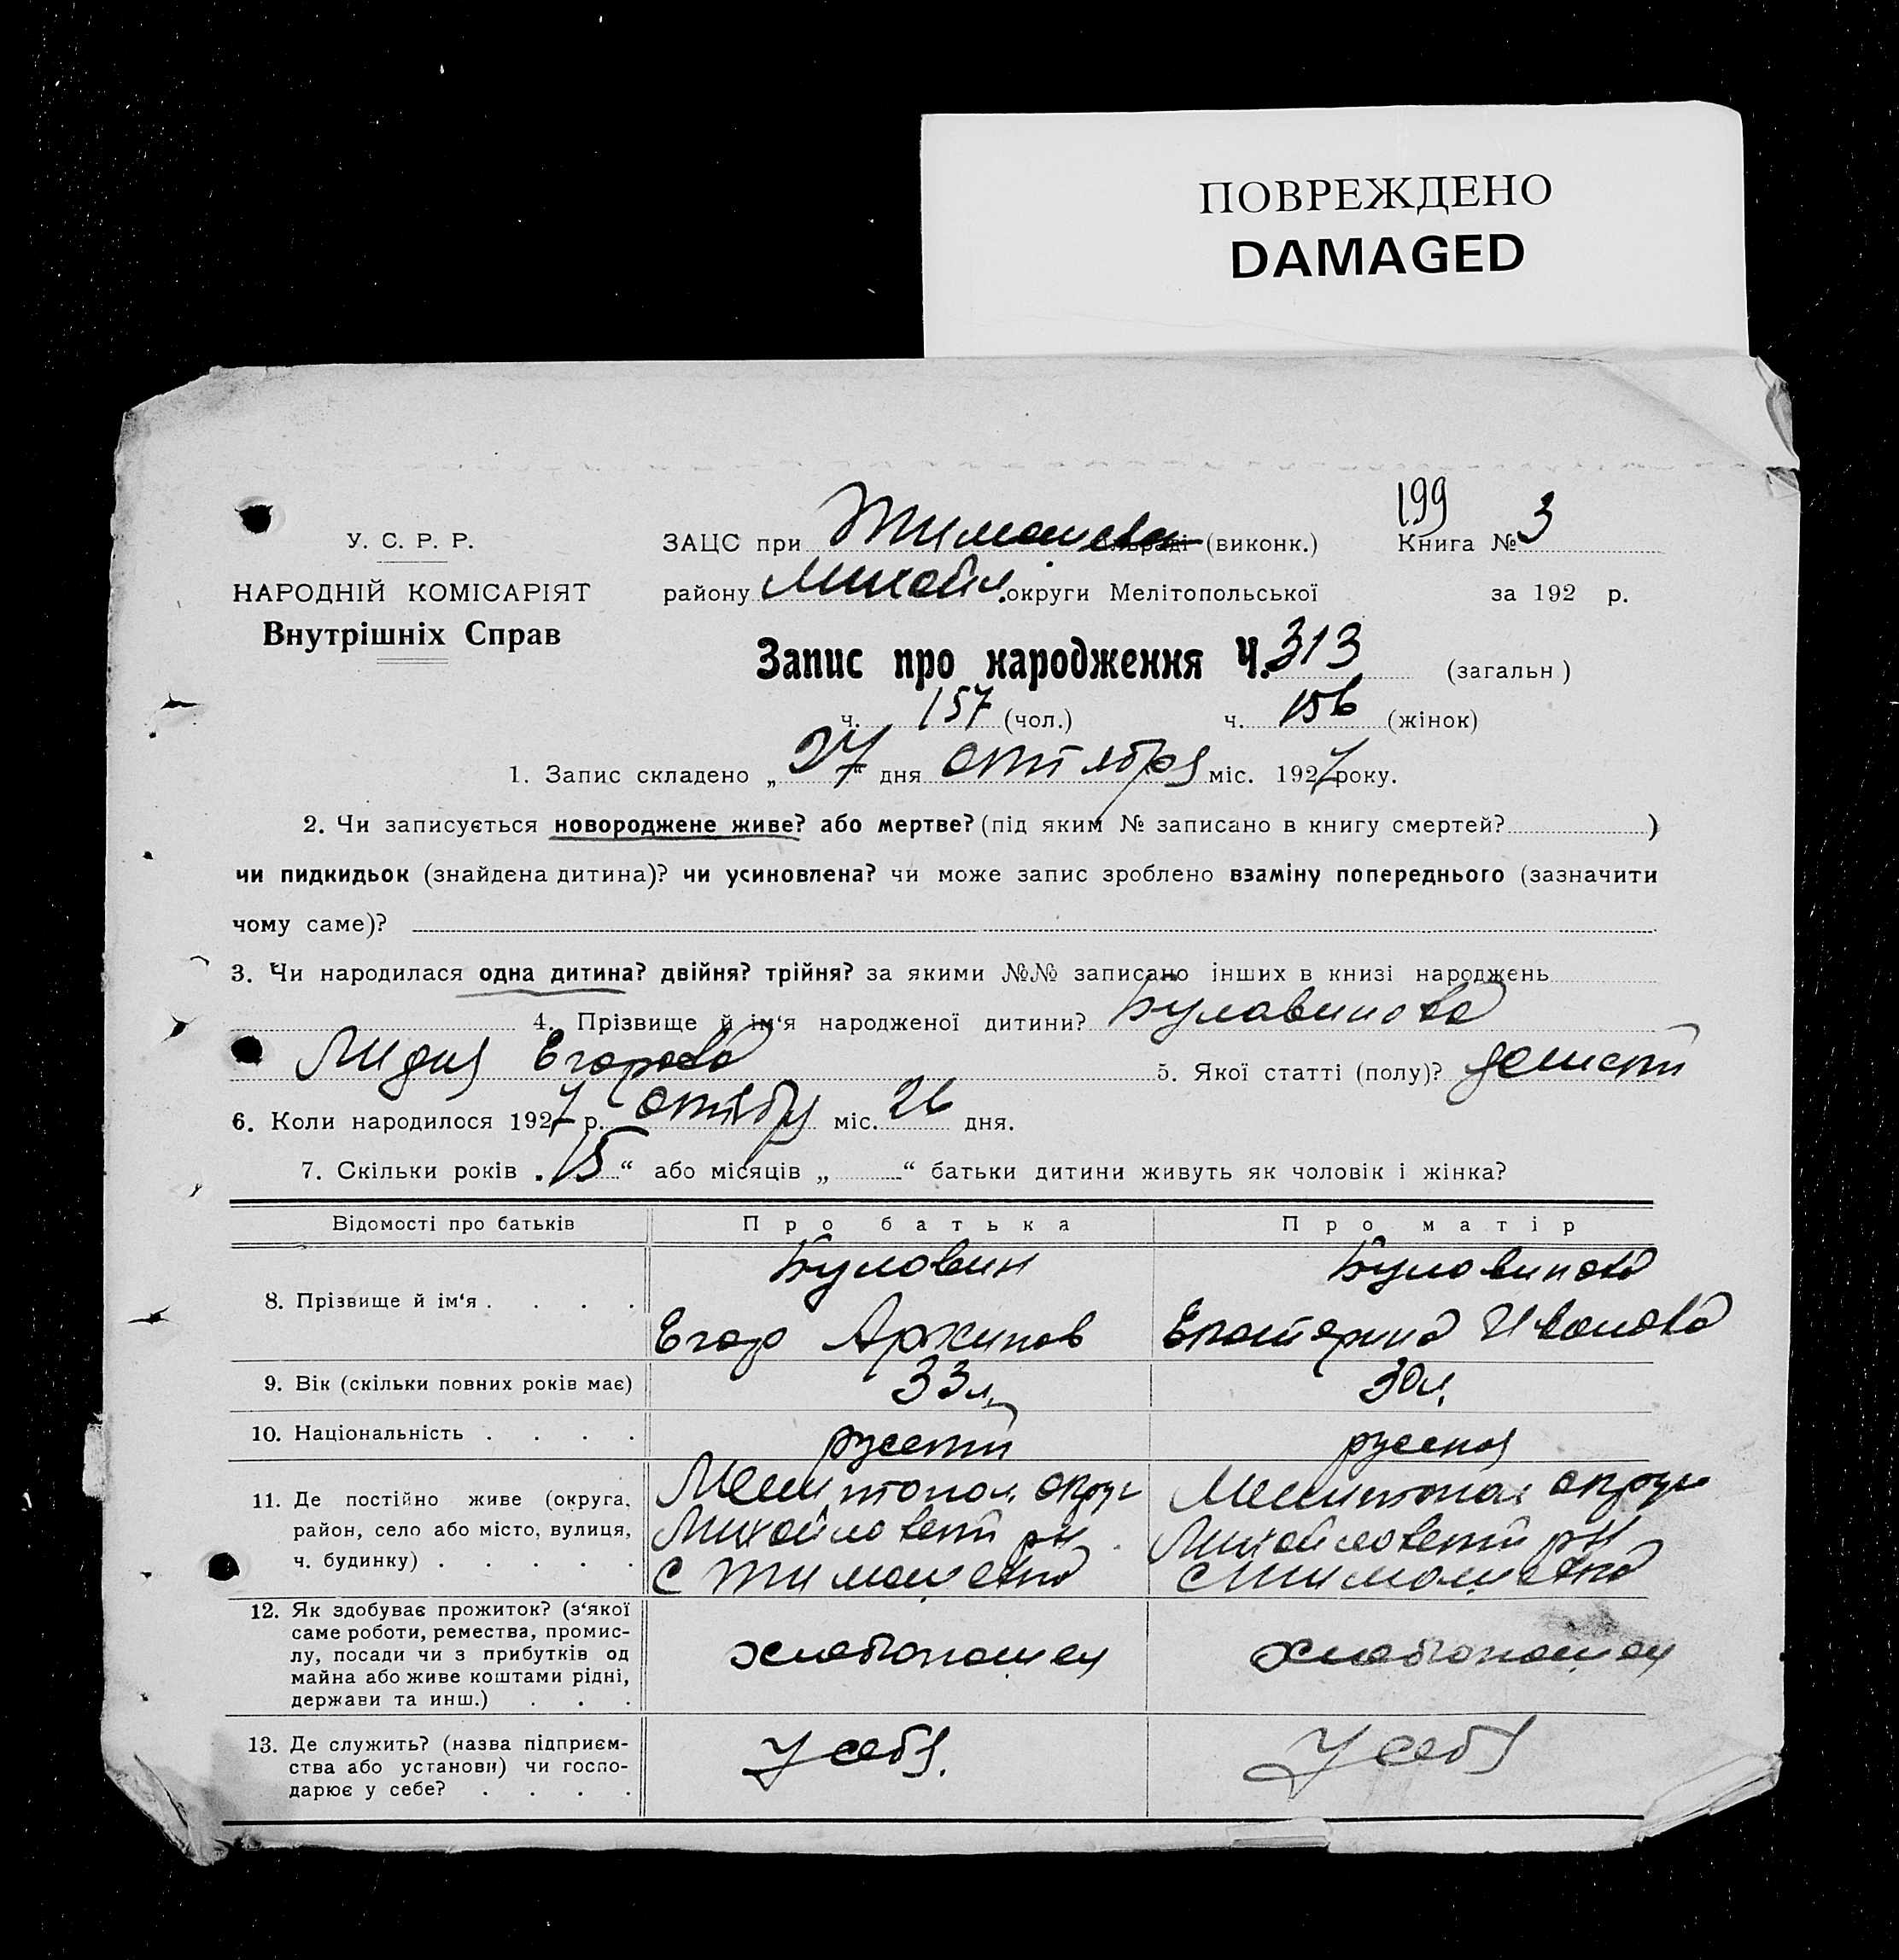 ПОВРЕЖДЕНО
DAMAGED
199
У. С. Р. Р.
ЗАЦС при Тимошевск (виконк.) Книга № 3
НАРОДНІЙ КОМІСАРІЯТ
району Михайл. округи Мелітопольської за 192 р.
Внутрішніх Справ
Запис про народження Ч. 313 (загальн)
ч. 157 (чол.) ч. 156 (жінок)
1. Запис складено „27“ дня октября міс. 1927 року.
2. Чи записується новороджене живе? або мертве? (під яким № записано в книгу смертей? )
чи пидкидьок (знайдена дитина)? чи усиновлена? чи може запис зроблено взаміну попереднього (зазначити
чому саме)?
3. Чи народилася одна дитина? двійня? трійня? за якими №№ записано інших в книзі народжень
4. Прізвище й ім‘я народженої дитини? Булавинова
Лидия Егорова 5. Якої статті (полу)? женски
6. Коли народилося 1927 р. октябр міс. 26 дня.
7. Скільки років „15“ або місяців „ “ батьки дитини живуть як чоловік і жінка?
Відомості про батьків Про батька Про матір
8. Прізвище й ім‘я . . . . Буловин Буловинова
Егор Архипов Екатерина Иванова
9. Вік (скільки повних років має) 33 л. 30 л.
10. Національність . . . . руский руская
11. Де постійно живе (округа, Мелитопол. округ Мелитопол. округ
район, село або місто, вулиця, Михайловский рн Михайловский рн
ч. будинку) . . . . . с Тимошевка с Тимошевка
12. Як здобуває прожиток? (з‘якої
саме роботи, ремества, промис-
лу, посади чи з прибутків од хлебопашец хлебопашец
майна або живе коштами рідні,
держави та инш.) . . .
13. Де служить? (назва підприєм-
ства або установи) чи госпо- У себя. У себя
дарює у себе? . . . .